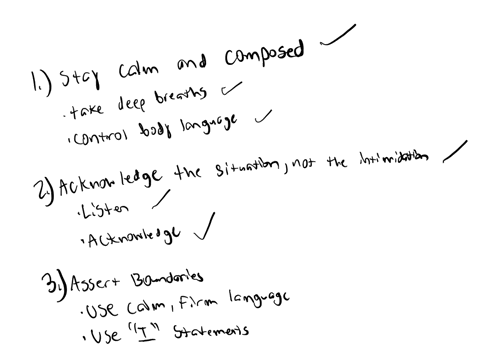 1.) Stay calm and composed ✓
· take deep breaths ✓
· control body language ✓
2.) Acknowledge the situation, not the intimidation ✓
· Listen ✓
· Acknowledge ✓
3.) Assert Boundaries
· Use calm, firm language
· Use "I" Statements